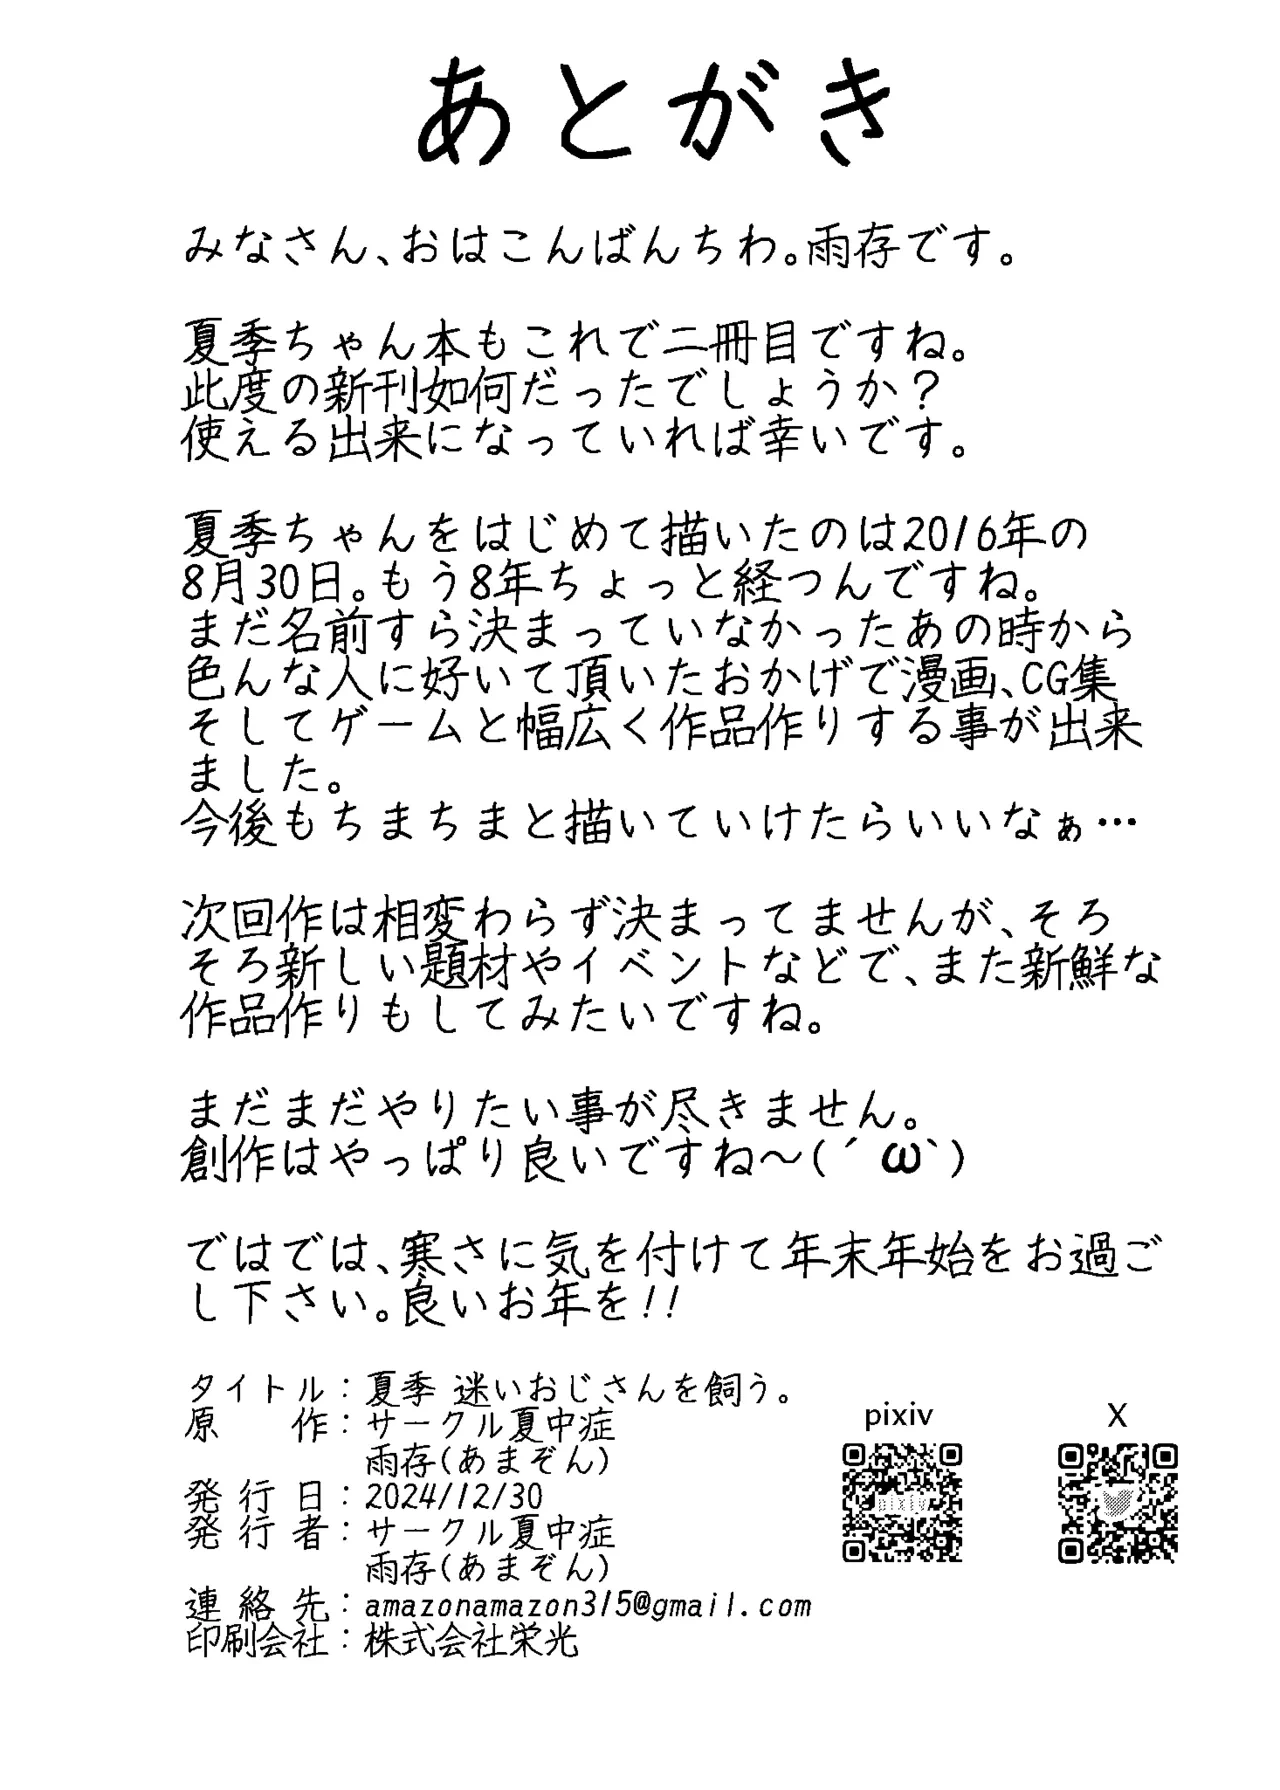 あとがき
みなさん、おはこんばんちわ。雨存です。
夏季ちゃん本もこれで二冊目ですね。
此度の新刊如何だったでしょうか？
使える出来になっていれば幸いです。
夏季ちゃんをはじめて描いたのは2016年の
8月30日。もう8年ちょっと経つんですね。
まだ名前すら決まっていなかったあの時から
色んな人に好いて頂いたおかげで漫画、CG集
そしてゲームと幅広く作品作りする事が出来
ました。
今後もちまちまと描いていけたらいいなぁ…
次回作は相変わらず決まってませんが、そろ
そろ新しい題材やイベントなどで、また新鮮な
作品作りもしてみたいですね。
まだまだやりたい事が尽きません。
創作はやっぱり良いですね～(´ω`)
ではでは、寒さに気を付けて年末年始をお過ご
し下さい。良いお年を!!
タイトル：夏季 迷いおじさんを飼う。
原　作：サークル夏中症
雨存(あまぞん)
発行日：2024/12/30
発行者：サークル夏中症
雨存(あまぞん)
連絡先：amazonamazon315@gmail.com
印刷会社：株式会社栄光
pixiv
X
pixiv